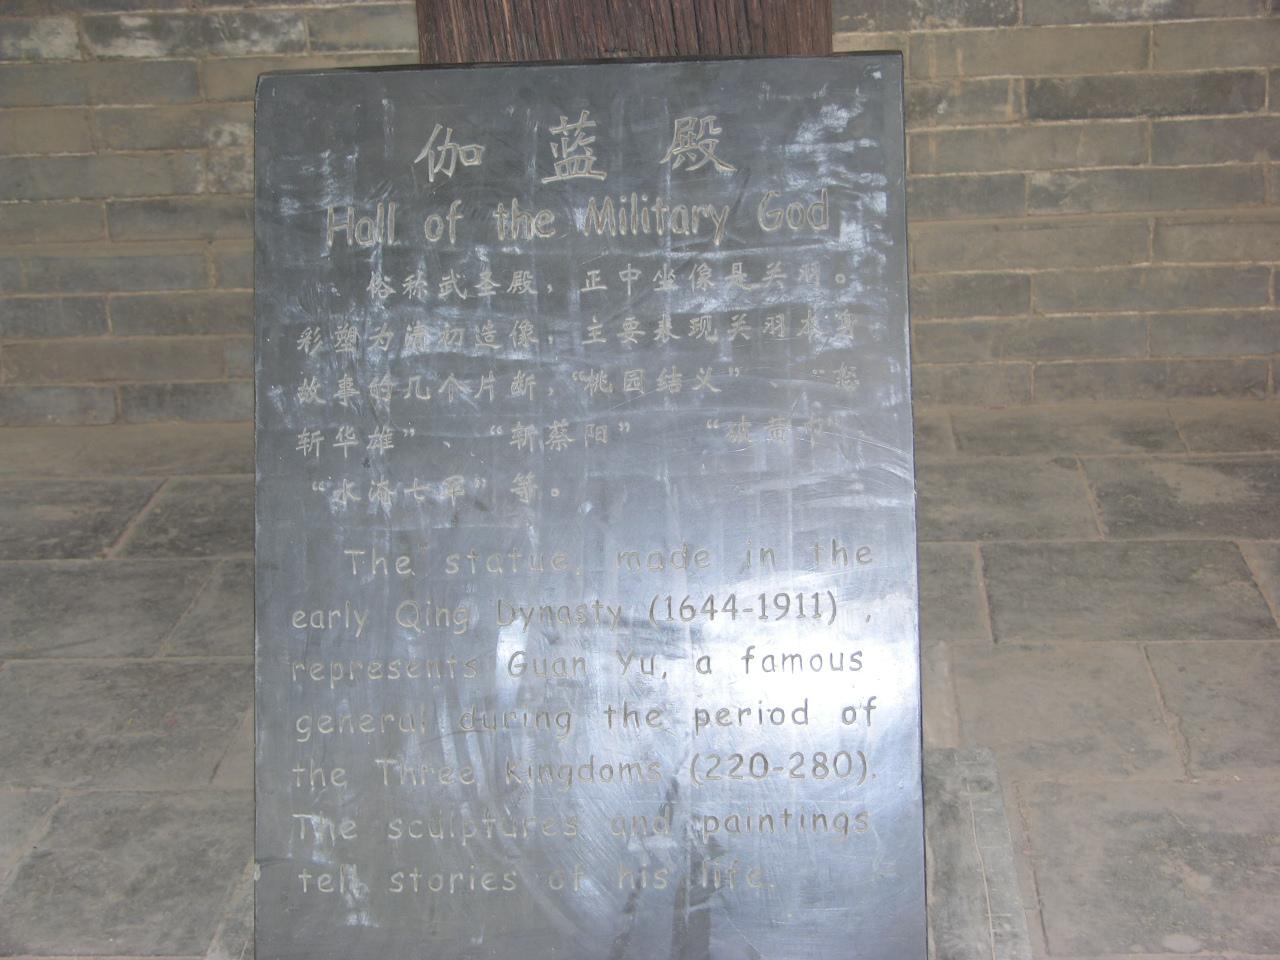 伽蓝殿
Hall of the Military God
俗称武圣殿，正中坐像是关羽。
彩塑为清初造像，主要表现关羽本身
故事的几个片断，“桃园结义”、“怒
斩华雄”、“斩蔡阳” “破黄巾”、
“水淹七军”等。
The statue, made in the
early Qing Dynasty (1644-1911) ,
represents Guan Yu, a famous
general during the period of
the Three Kingdoms (220-280).
The sculptures and paintings
tell stories of his life.